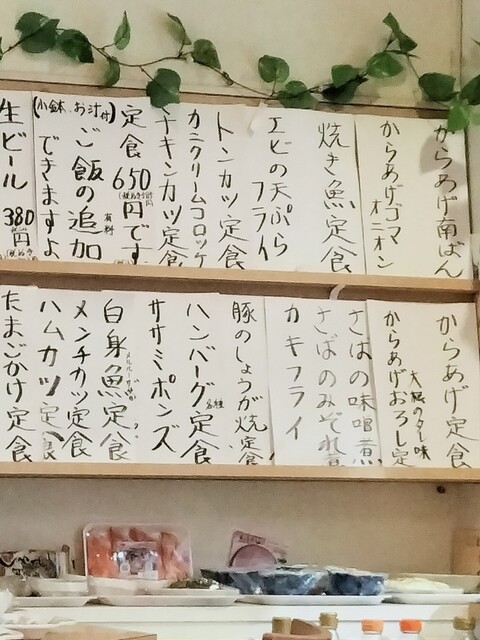 からあげ南ばん
からあげゴマ
オニオン
焼き魚定食
エビの天ぷら
フライ
トンカツ定食
カニクリームコロッケ
チキンカツ定食
定食650円です
(小鉢、お汁付)
ご飯の追加
有料
できますよ
生ビール380円
からあげ定食
からあげおろし定
大根のタレ味
さばの味噌煮
さばのみぞれ煮
カキフライ
豚のしょうが焼定食
ハンバーグ定食
各種
ササミポンズ
白身魚定食
メンチカツ定食
ハムカツ定食
たまごかけ定食